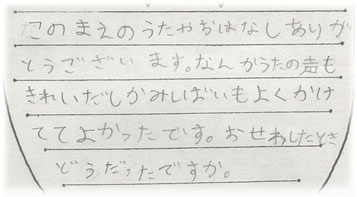 このまえのうたやおはなしありが
とうございます。なんかうたの声も
きれいだしかみしばいもよくかけ
ててよかったです。おせわしたとき
どうだったですか。